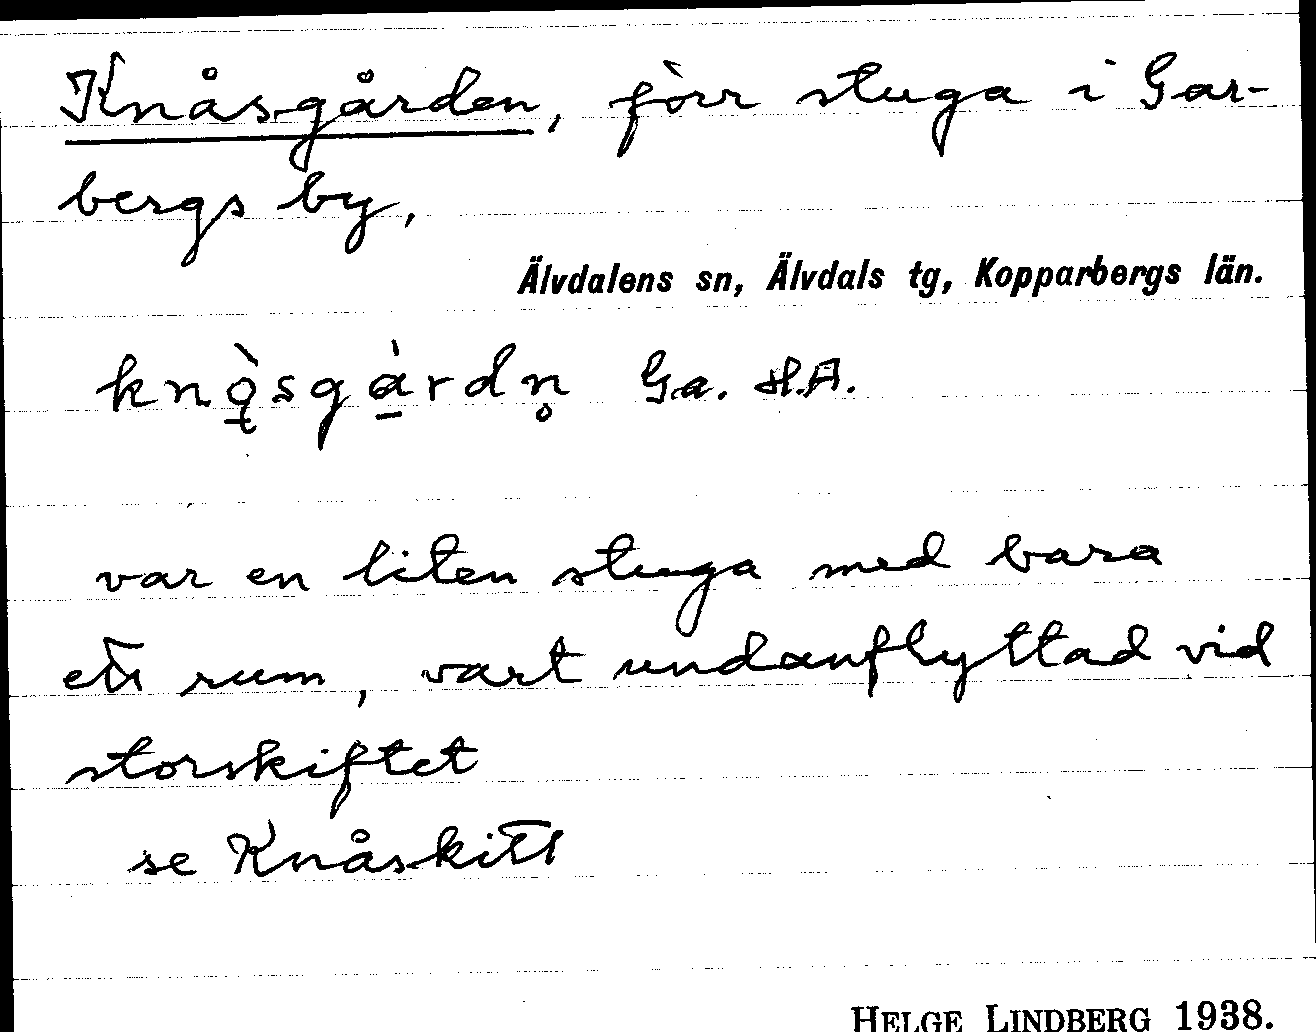 Knåsgården, förr stuga i Gar-
bergs by,
Älvdalens sn, Älvdals tg, Kopparbergs län.
knǫ̀sgà̱rdn̥ Ga. H.A.
var en liten stuga med bara
ett rum, vart undanflyttad vid
storskiftet
se Knåskitt
HELGE LINDBERG 1938.